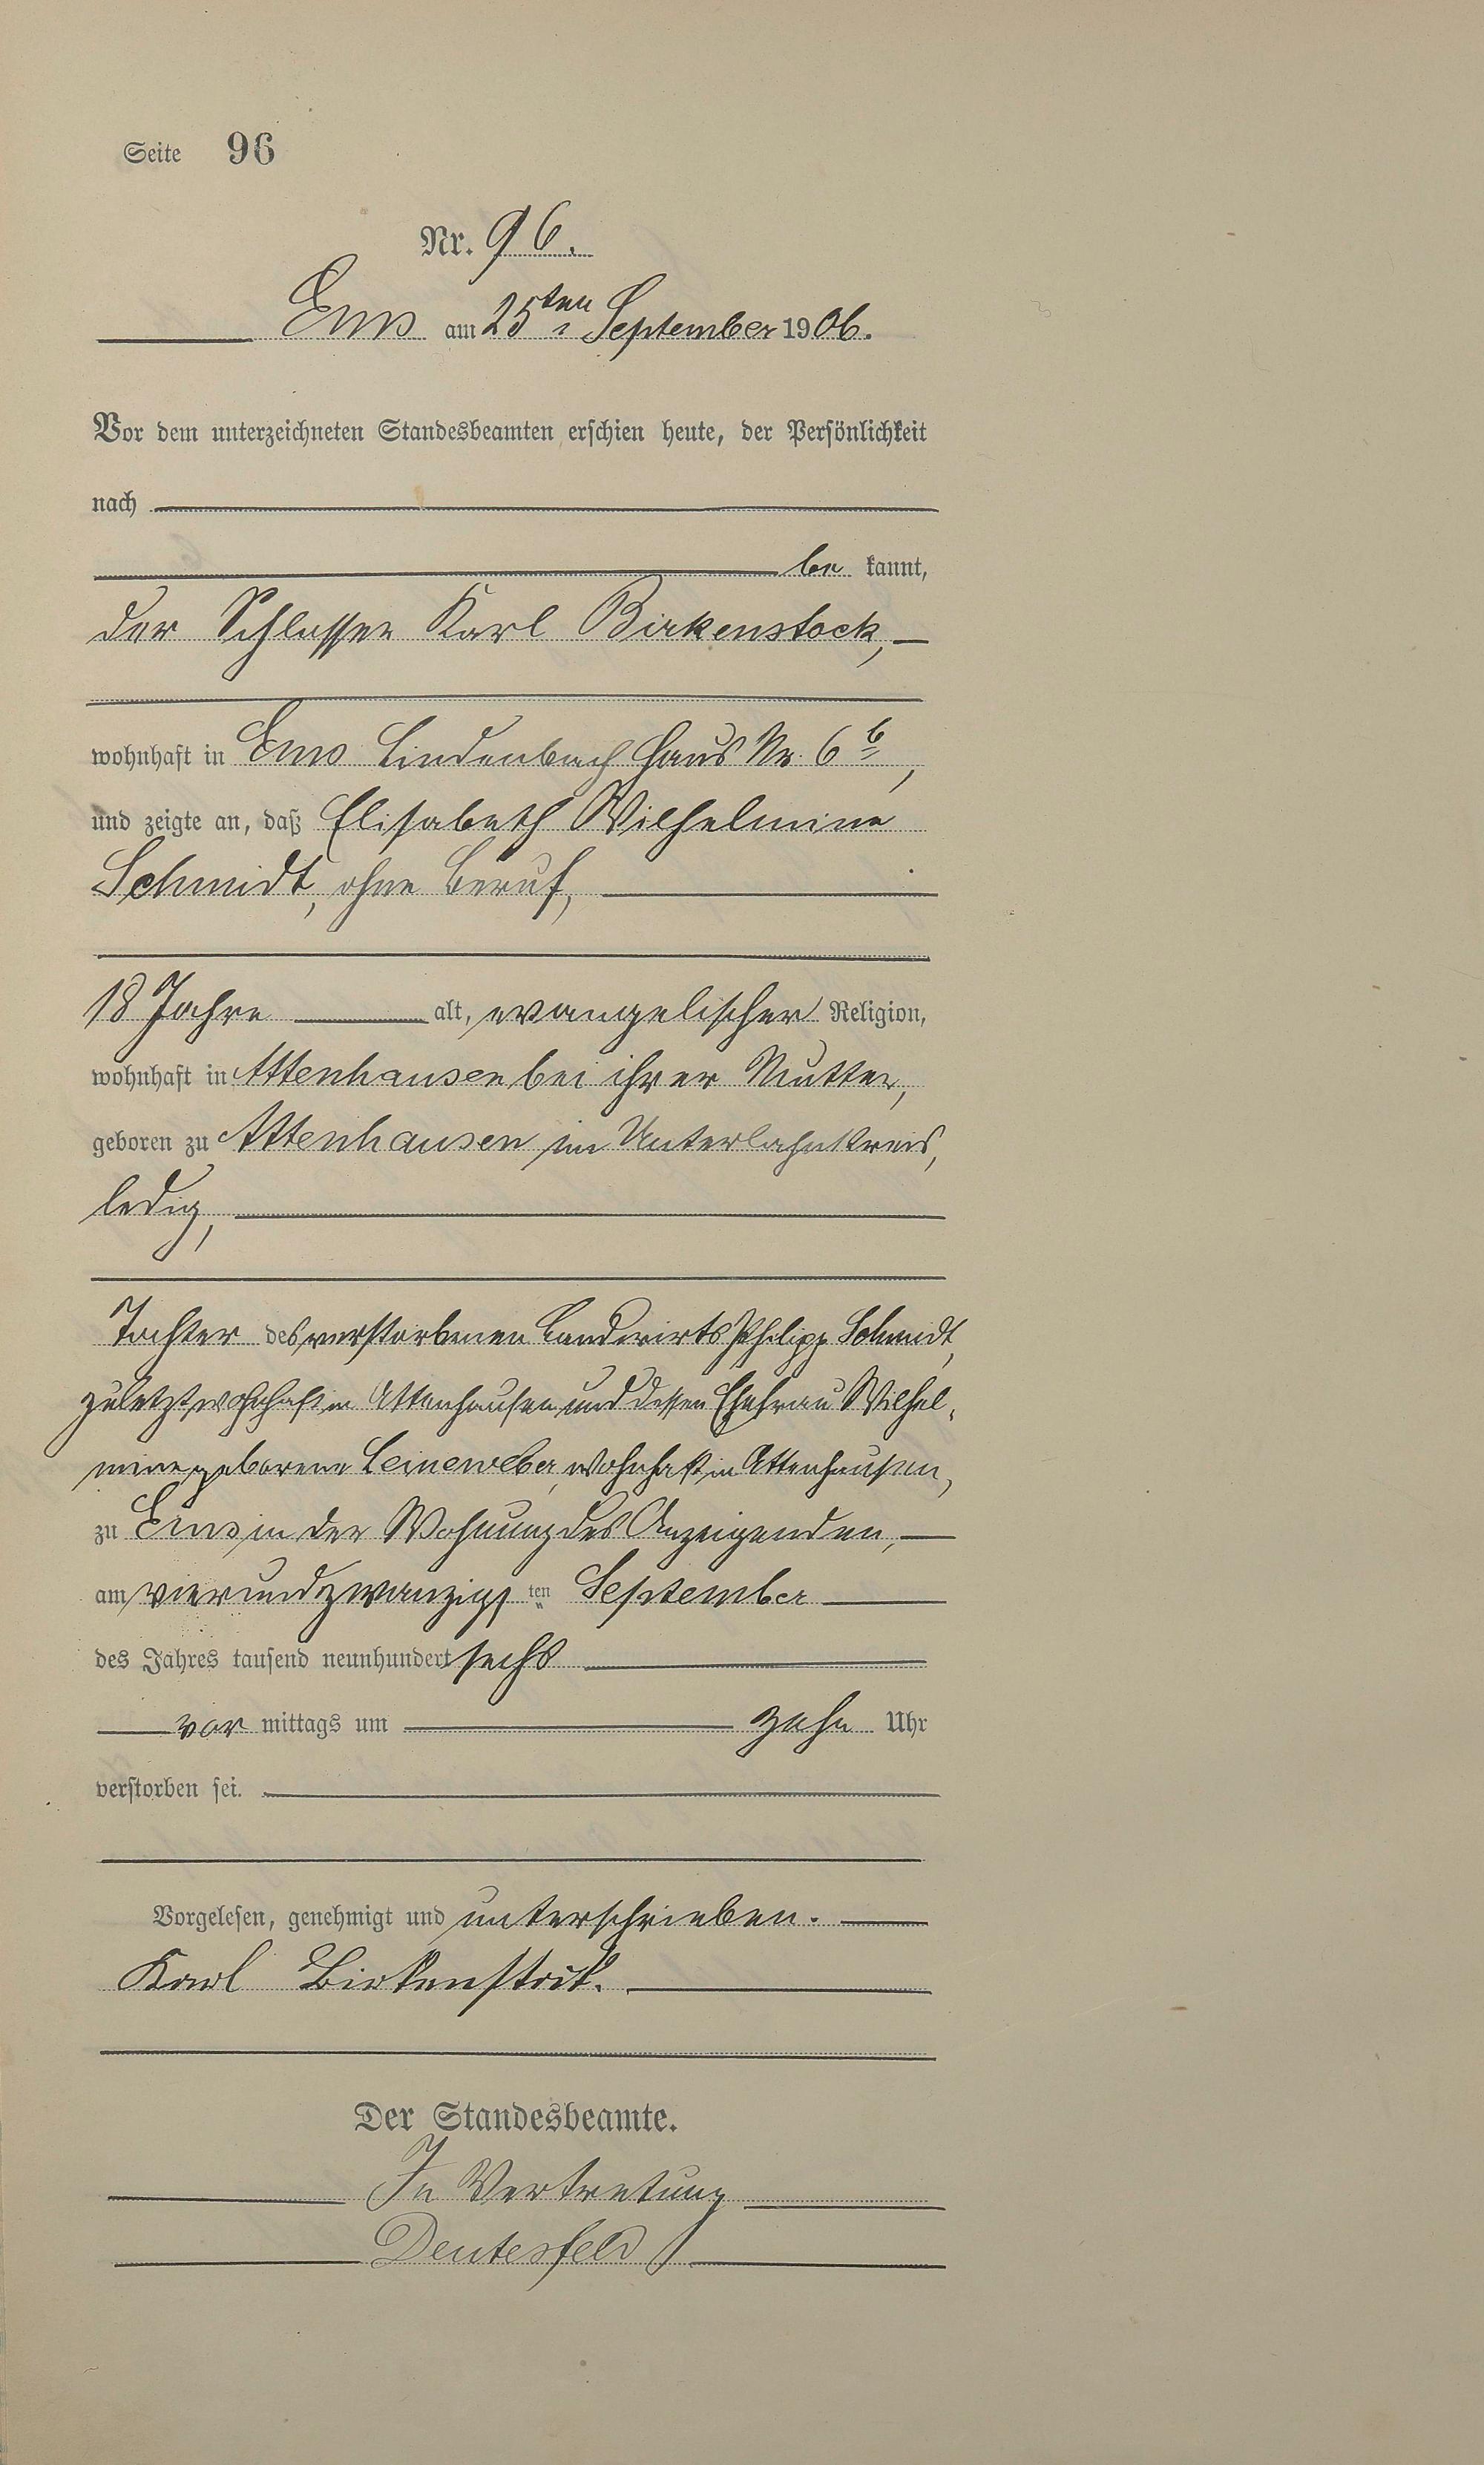 Seite 96
Nr. 96.
Ems am 25ten September 1906.
Vor dem unterzeichneten Standesbeamten erschien heute, der Persönlichkeit
nach
be kannt,
der Schlosser Karl Birkenstock,
wohnhaft in Ems Lindenbach Haus Nr. 6b,
und zeigte an, daß Elisabeth Wilhelmine
Schmidt, ohne Beruf,
18 Jahre alt, evangelischer Religion,
wohnhaft in Attenhausen bei ihrer Mutter,
geboren zu Attenhausen im Unterlahnkreis,
ledig,
Tochter des verstorbenen Landwirts Philipp Schmidt,
zuletzt wohnhaft in Attenhausen und dessen Ehefrau Wilhel-
mine geborene Leineweber, wohnhaft in Attenhausen,
zu Ems in der Wohnung des Anzeigenden,
am vierundzwanzigsten September
des Jahres tausend neunhundert sechs
vor mittags um zehn Uhr
verstorben sei.
Vorgelesen, genehmigt und unterschrieben.
Karl Birkenstock.
Der Standesbeamte.
In Vertretung
Deutesfeld